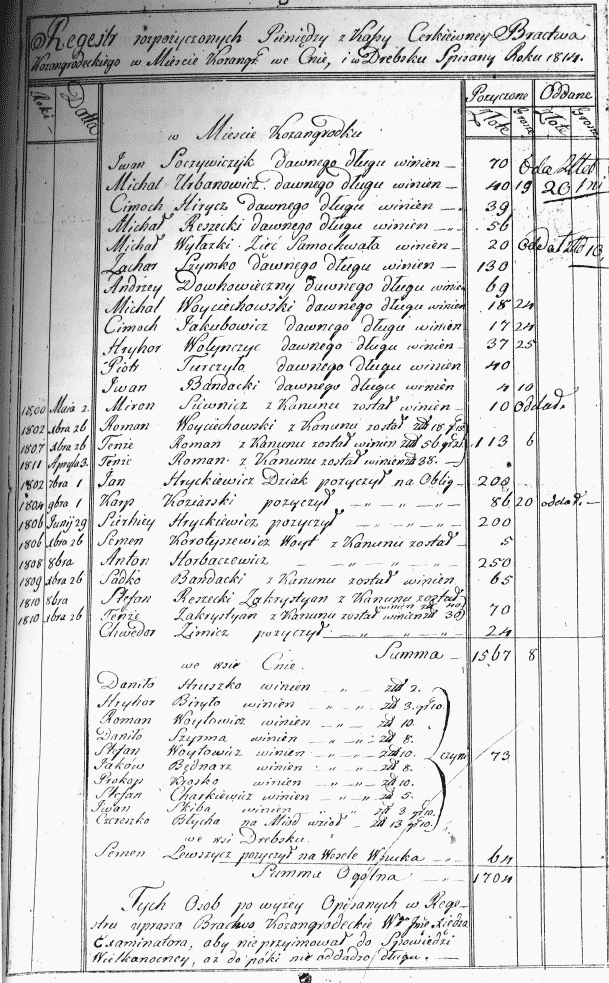 Regestr rozpożyczonych Pieniędzy z Kassy Cerkiewney Bractwa
Kozangrodeckiego w Mieście Kozangr. we Cnie, i w Drebsku Spisany Roku 1814.
Roki Datta Pożyczone Oddane
Złote Grosze Złote Grosze
w Mieście Kozangrodku
Iwan Soczywiczyk dawnego długu winien — 70
Michał Urbanowicz dawnego długu winien — 40 19 20
Cimoch Hirycz dawnego długu winien — 39
Michał Reszecki dawnego długu winien — 56
Michał Wylazki Zięć Samochwała winien — 20
Zachar Szymko dawnego długu winien — 130
Andrzey Dowhowieczny dawnego długu winien 69
Michał Woyciechowski dawnego długu winien 18 24
Cimoch Jakubowicz dawnego długu winien 17 24
Hryhor Wołynczyc dawnego długu winien 37 25
Piotr Turczyło dawnego długu winien 40
Iwan Bandacki dawnego długu winien 4 10
1800 Maia 2. Miron z Kanunu został winien 10 oddał.
1802 xbra 26 Roman Woyciechowski z Kanunu został
1807 xbra 26 Tenże Roman z Kanunu został winien zł 56 113 6
1811 Apryla 3. Tenże Roman z Kanunu został winien zł 38. —
1802 7bra 1 Jan Hryckiewicz Dziak pożyczył na Oblig — 200
1804 9bra 1 Karp Koziarski pożyczył — „ — „ — 86 20 oddał. —
1806 Junij 29 Sierhiey Hryckiewicz pożyczył — „ — „ — 200
1806 xbra 26 Semen Korotyszewicz Woyt z Kanunu został 5
1808 8bra Anton Horbaczewicz — „ — „ — 250
1809 xbra 26 Sadko Bandacki z Kanunu został winien 65
1810 8bra Stefan Reszecki Zakrystyan z Kanunu został winien zł 40
1810 xbra 26 Tenże Zakrystyan z Kanunu został winien zł 30 70
Chwedor Zimicz pożyczył — „ — „ — 24
Summa — 1567 8
we wsie Cnie.
Daniło Hruszko winien — „ — zł 2.
Hryhor Biryło winien — „ — zł 3. gr 10.
Roman Woytowicz winien — „ — zł 10.
Daniło Szyrma winien — „ — zł 8.
Stefan Woytowicz winien — „ — zł 10. czyni 73
Jaków Bednarz winien — „ — zł 8.
Prokop Krasko winien — „ — zł 10.
Stefan Charkiewicz winien — „ — zł 5.
Iwan Skiba winien „ „ zł 3 gr 10.
Czereszko Błycha na Miód wziął — zł 13 gr 10.
we wsi Drebsku.
Semen Lewszycz pożyczył na Wesele Wnuka — 64
Summa Ogólna — 1704
Tych Osob po wyżey Opisanych w Rege-
stru uprasza Bractwo Kozangrodeckie Xiędza
Examinatora, aby nie przyimował do Spowiedzi
Wielkanocney, aż do póki nie oddadzą długu. —